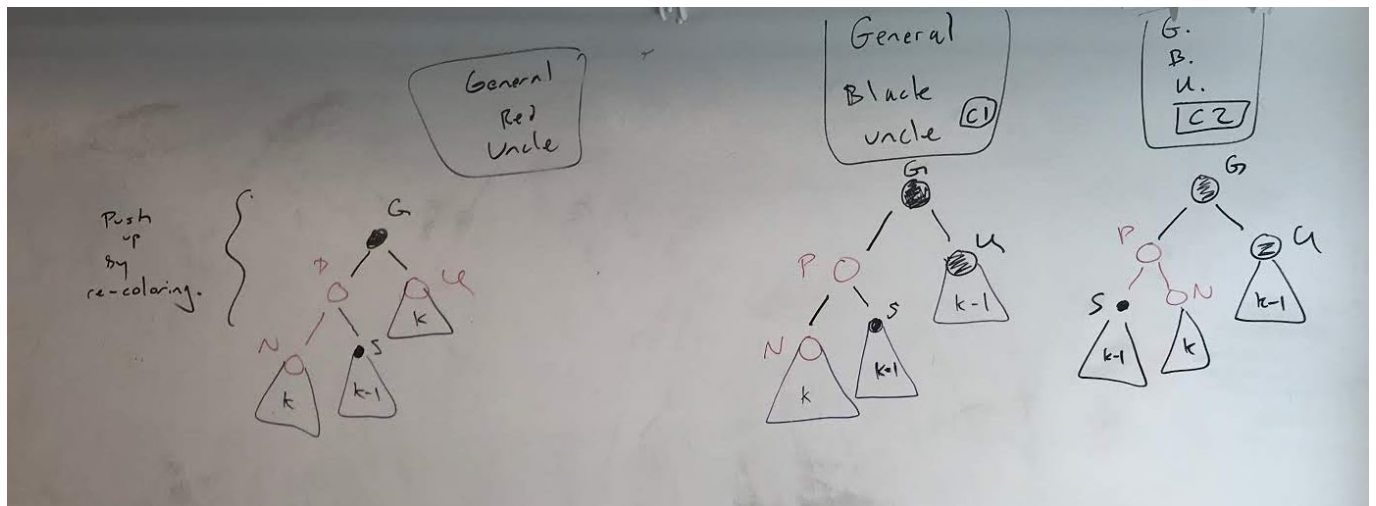 General
Red
Uncle
Push
up
by
re-coloring.
G
P
U
k
N
S
k
k-1
General
Black
uncle
C1
G
P
U
k-1
N
S
k
k-1
G.
B.
U.
C2
G
P
U
S
N
k-1
k
k-1